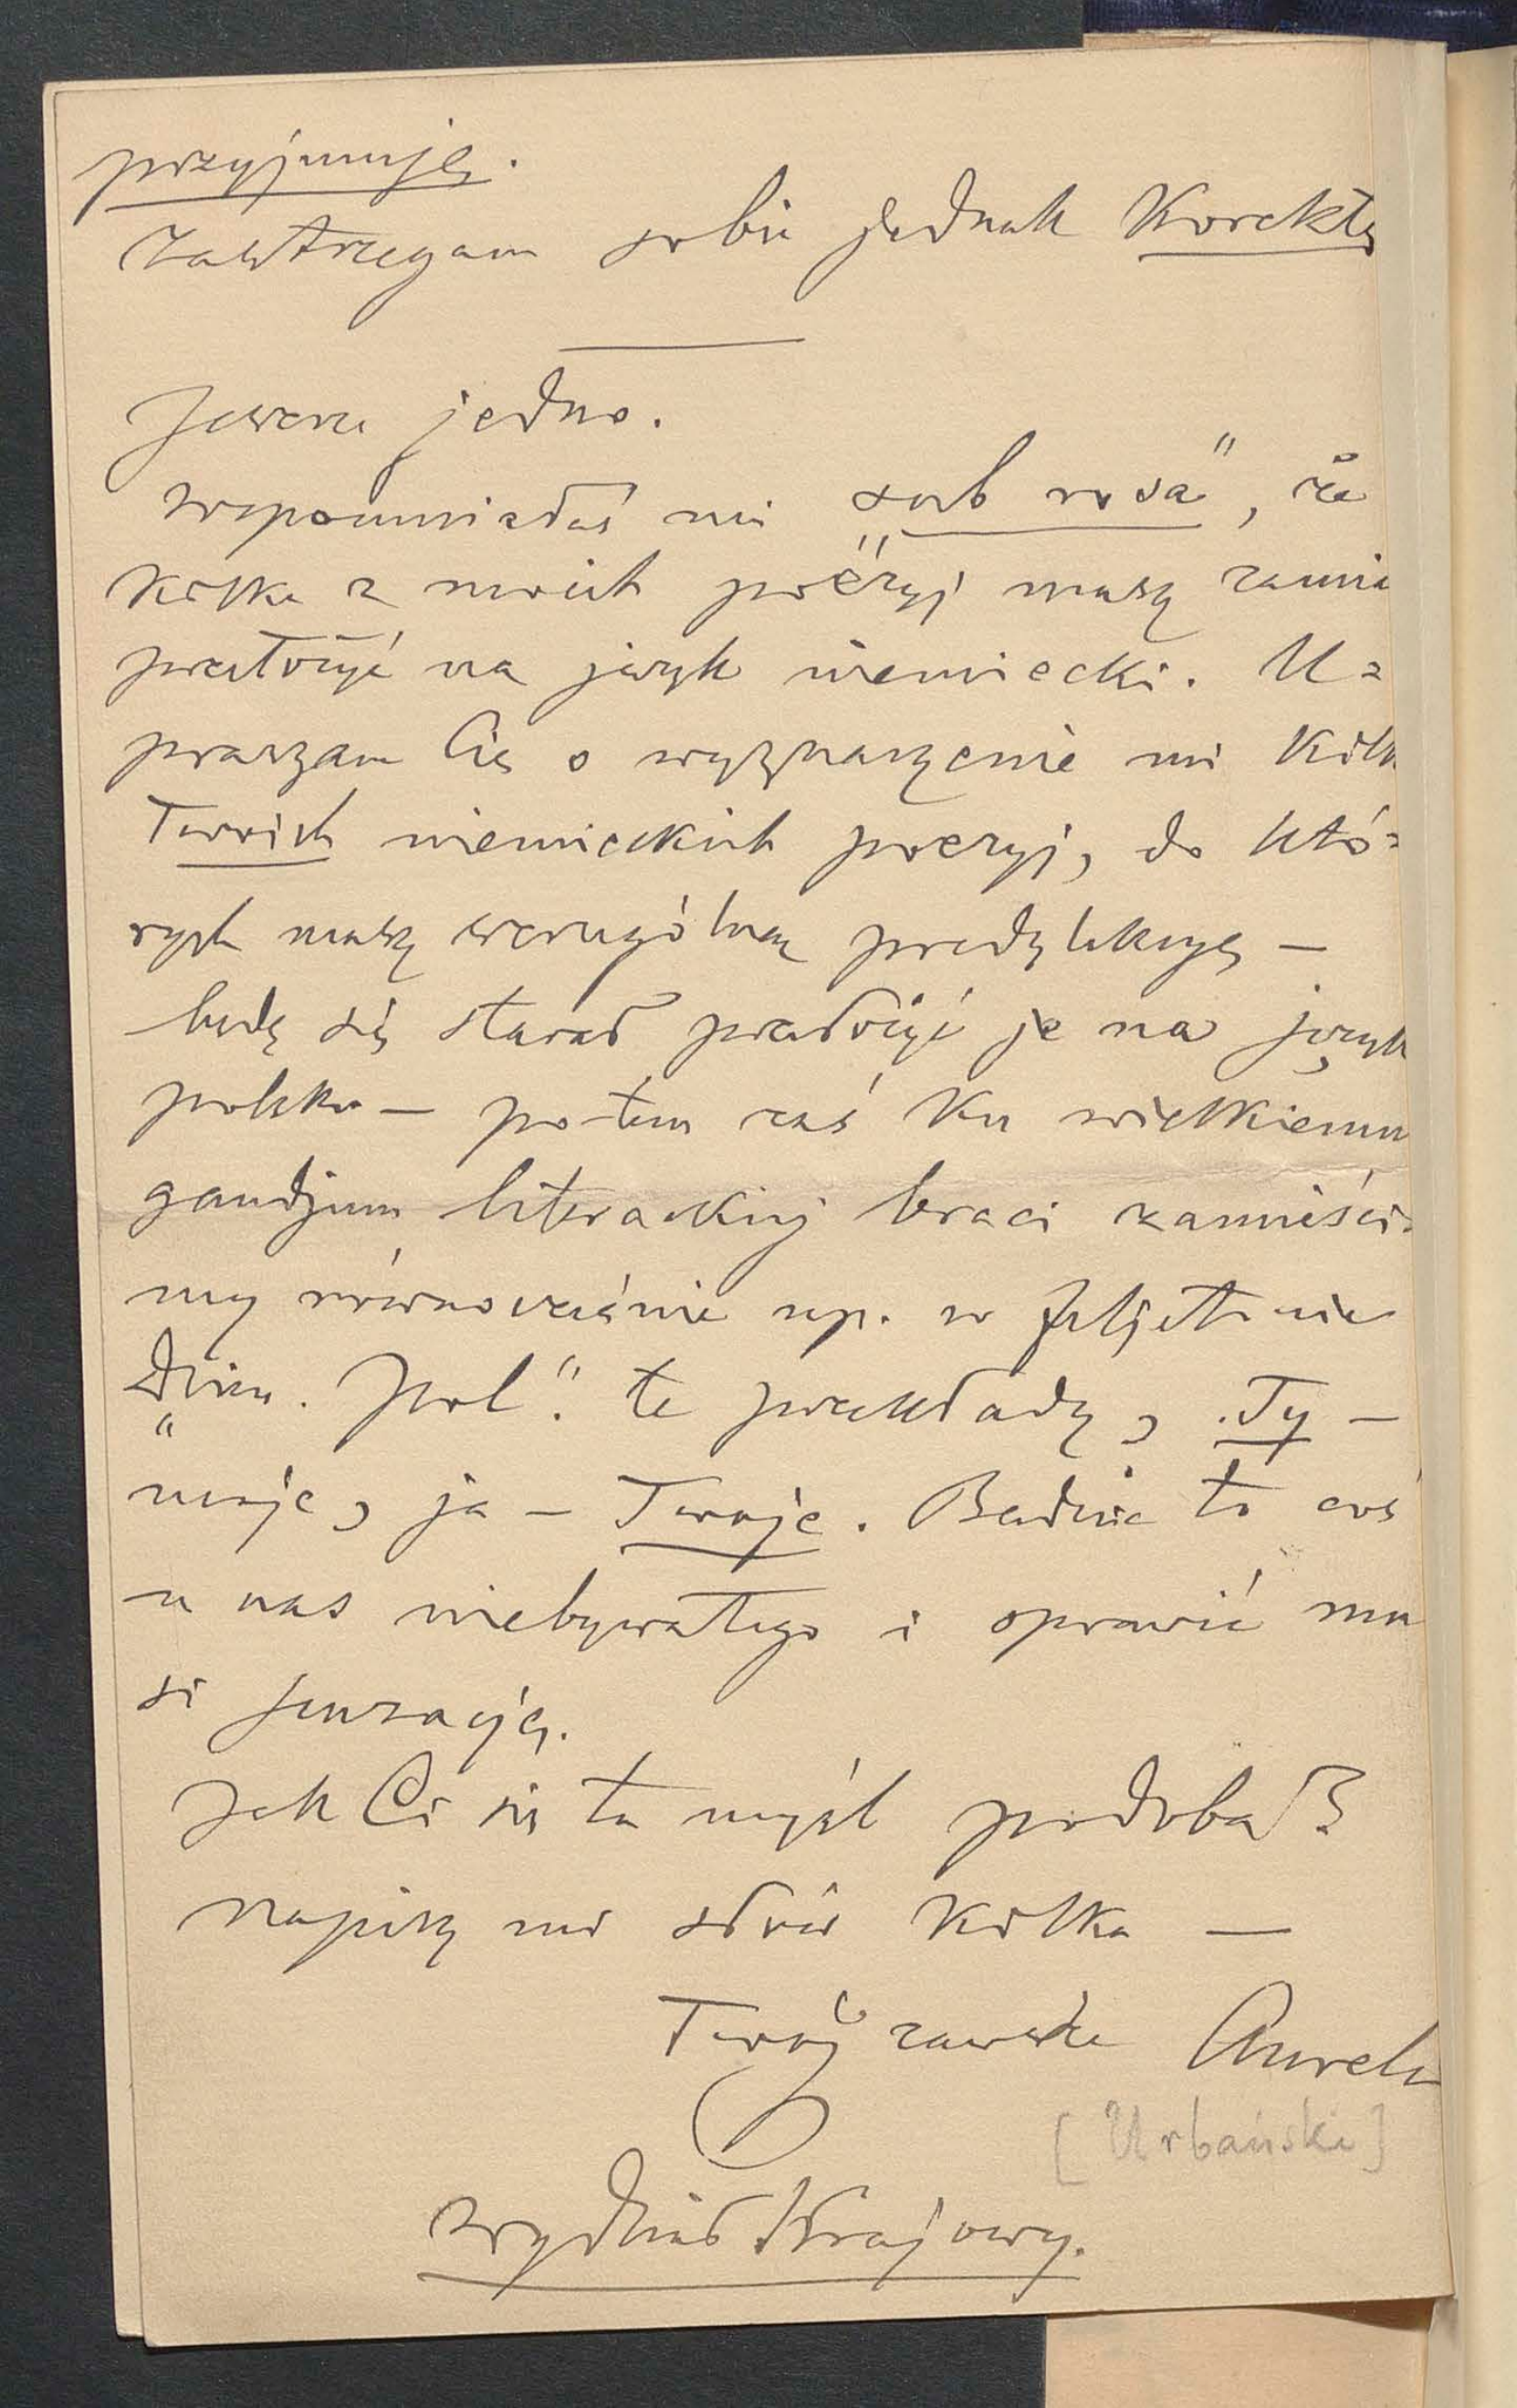 przyjmuję.
Zastrzegam sobie jednak Korektę
Jeszcze jedno.
Wspomniałeś mi „sub rosa", że
kilka z moich poëzyj masz zamia
przełożyć na język niemiecki. U=
praszam Cię o wyznaczenie mi kilk
Twoich niemieckich poezyj, do któ=
rych masz szczególną predylekcyę —
będę się starał przełożyć je na język
polski — potem zaś ku wielkiemu
gaudjum literackiej braci zamieści=
my równocześnie np. w feljetonie
„Dzien. Pol." te przekłady, Ty —
moje, ja — Twoje. Będzie to coś
u nas niebywałego i sprawić mu
si senzację.
Jak Ci się ta myśl podoba?
Napisz mi słów kilka —
Twój zawsze Aureli
[Urbański]
Wydział Krajowy.